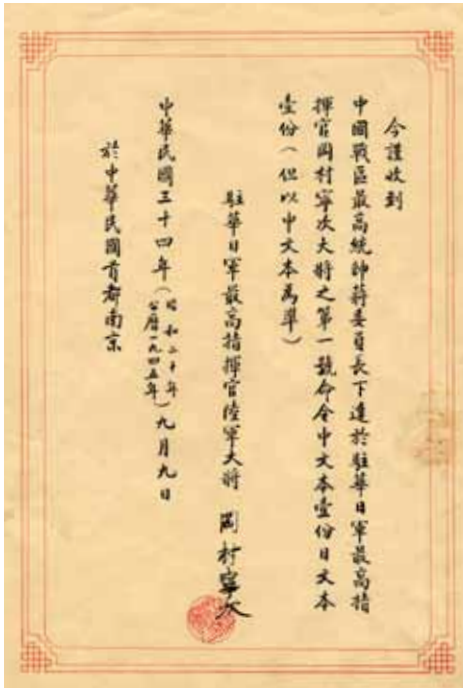 今謹收到
中國戰區最高統帥蔣委員長下達於駐華日軍最高指
揮官岡村寧次大將之第一號命令中文本壹份日文本
壹份(但以中文本為準)
駐華日軍最高指揮官陸軍大將 岡村寧次
中華民國三十四年(昭和二十年 公曆一九四五年)九月九日
於中華民國首都南京